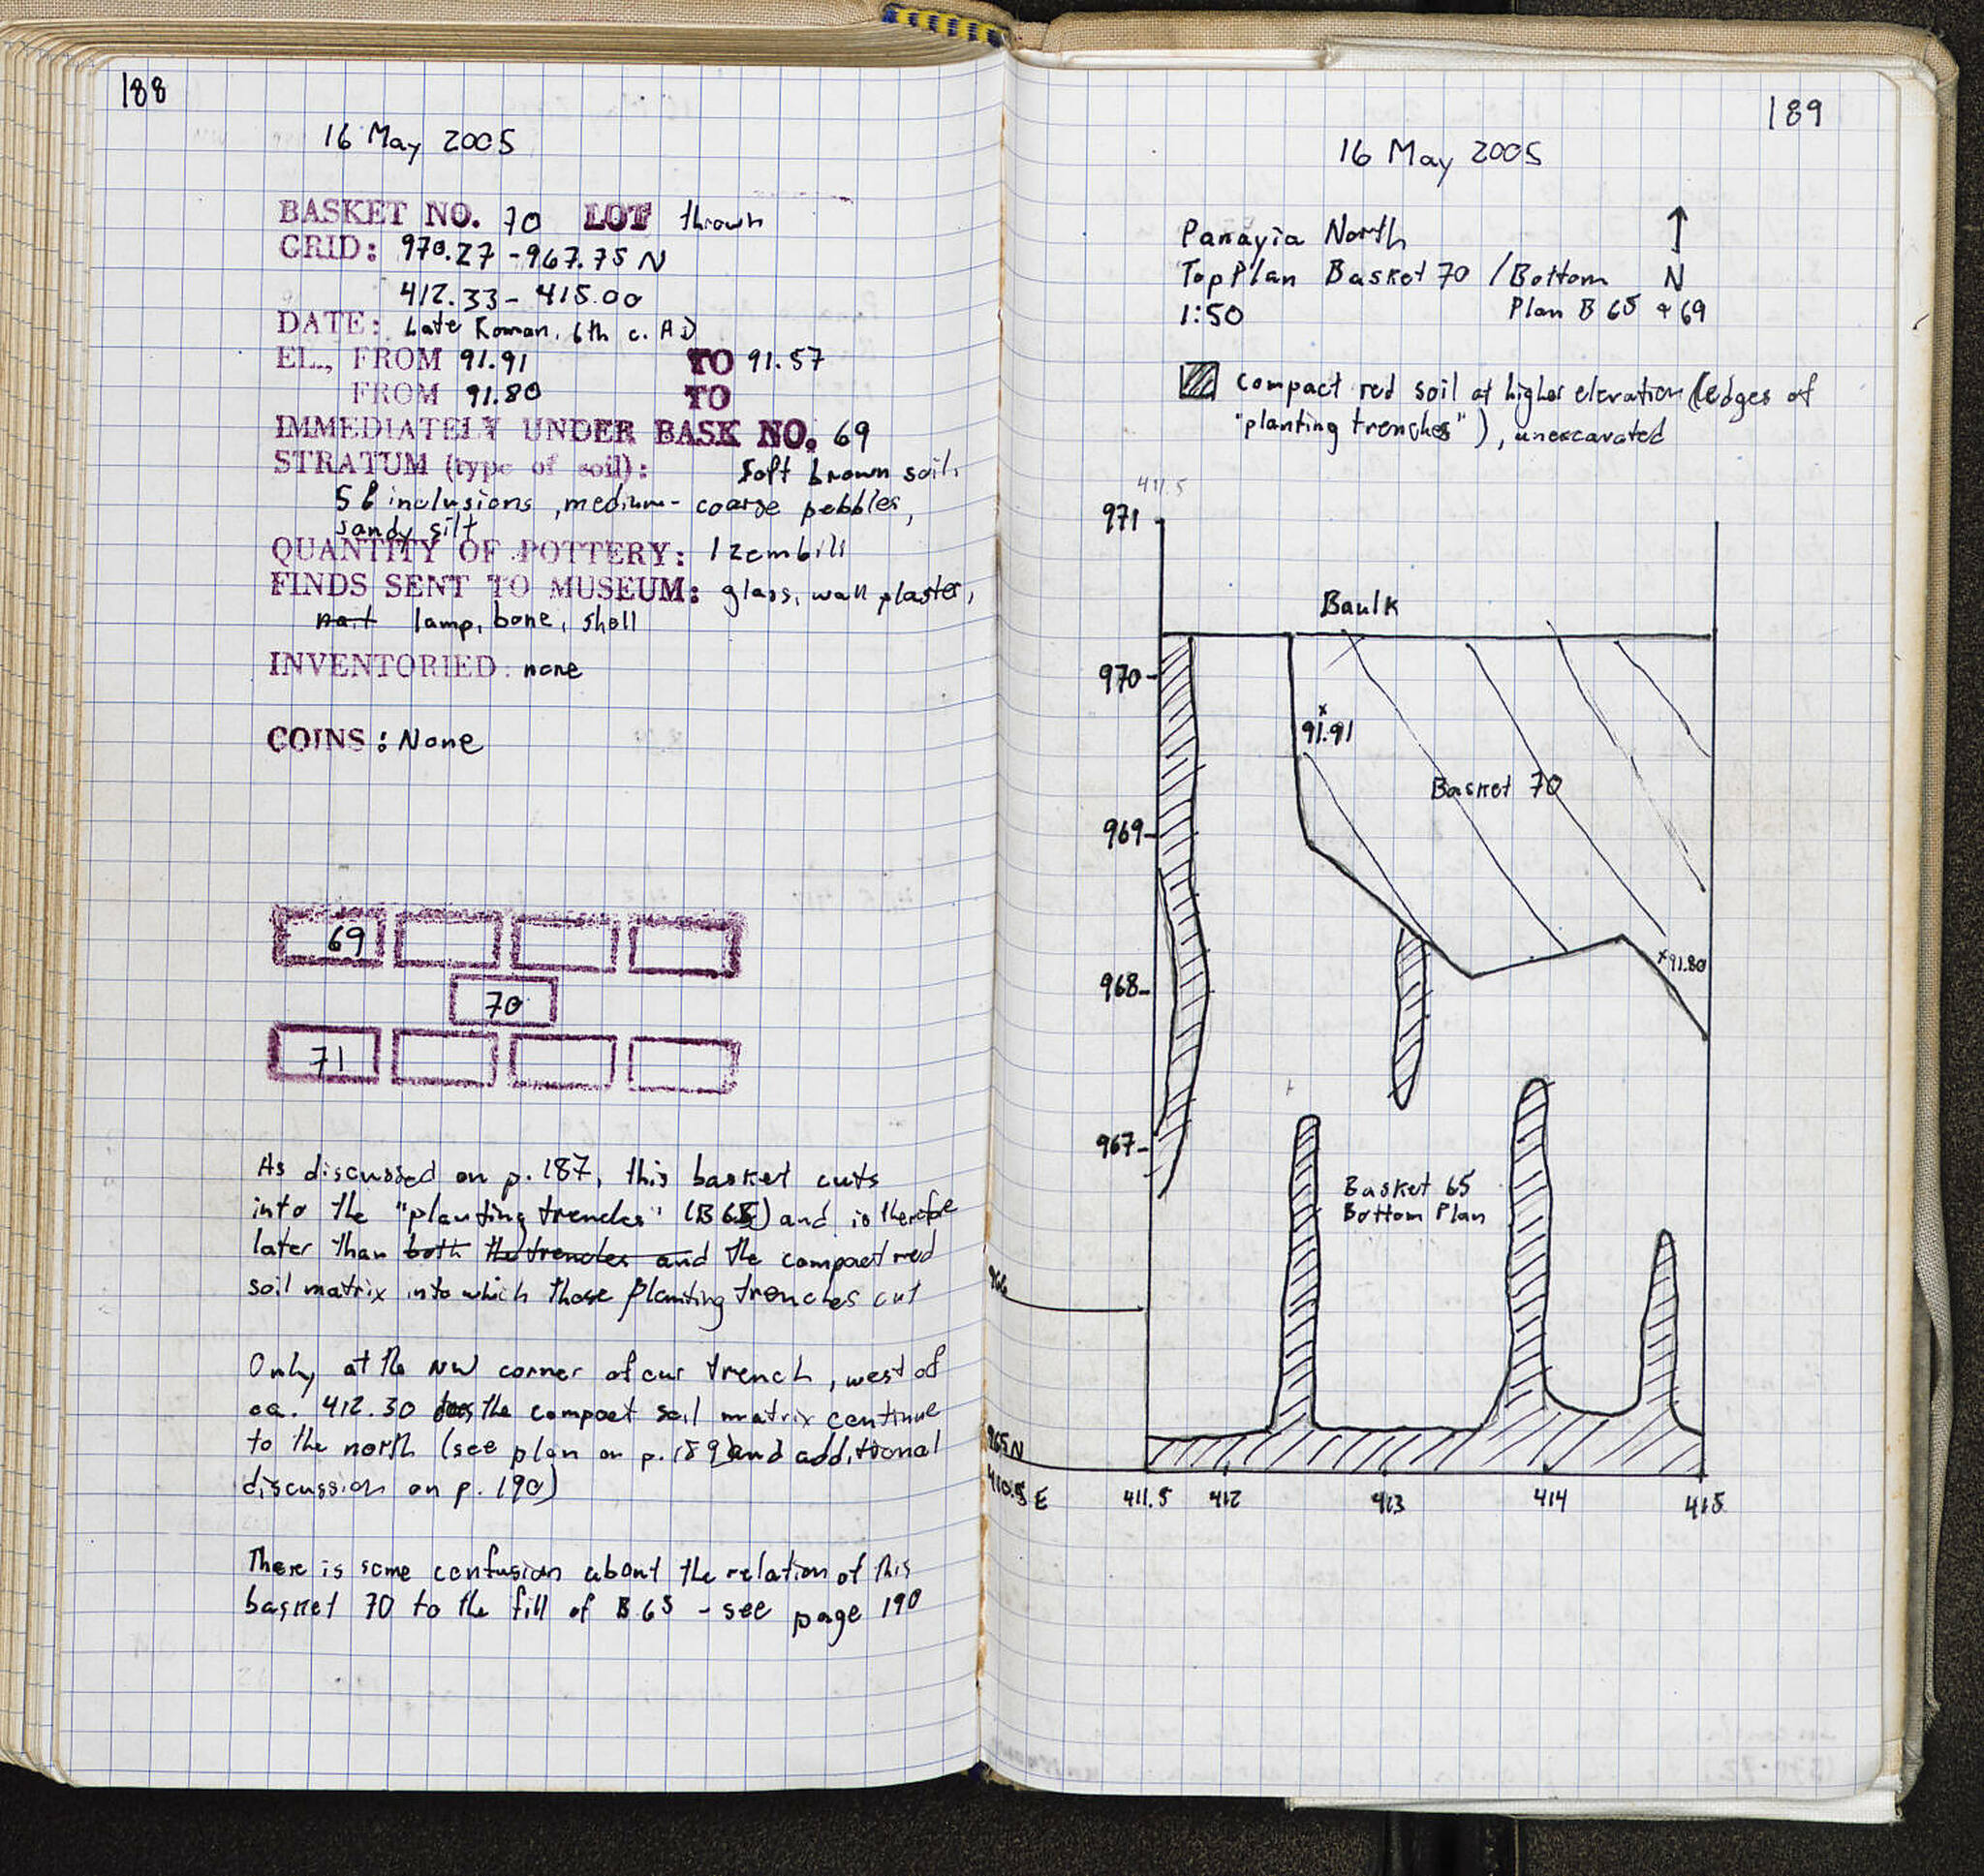 188
16 May 2005
BASKET NO. 70 LOT thrown
GRID: 970.27 - 967.75 N
412.33 - 415.00
DATE: Late Roman, 6th c. AD
EL., FROM 91.91 TO 91.57
FROM 91.80 TO
IMMEDIATELY UNDER BASK NO. 69
STRATUM (type of soil): Soft brown soil,
inclusions, medium-coarse pebbles,
sandy silt
QUANTITY OF POTTERY: 1 zembili
FINDS SENT TO MUSEUM: glass, wall plaster,
nail lamp, bone, shell
INVENTORIED: none
COINS: None
69
70
71
As discussed on p. 187, this basket cuts
into the "planting trenches" (B 65) and is therefore
later than both the trenches and the compact red
soil matrix into which those planting trenches cut
Only at the NW corner of our trench, west of
ca. 412.30 does the compact soil matrix continue
to the north (see plan on p. 189 and additional
discussion on p. 190)
There is some confusion about the relation of this
basket 70 to the fill of B 65 - see page 190
189
16 May 2005
Panayia North
Top Plan Basket 70 / Bottom N
1:50 Plan B 65 + 69
compact red soil at higher elevation (edges of
"planting trenches"), unexcavated
411.5
971
Baulk
970
91.91
Basket 70
969
91.80
968
967
Basket 65
Bottom Plan
966
965 N
410.5 E 411.5 412 413 414 415